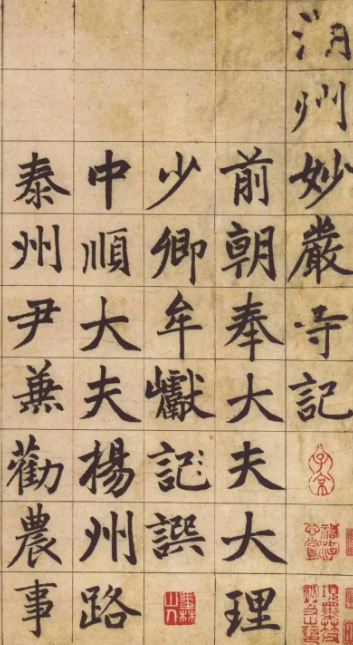 湖州妙嚴寺記
前朝奉大夫大理
少卿牟巘記譔
中順大夫楊州路
泰州尹兼勸農事